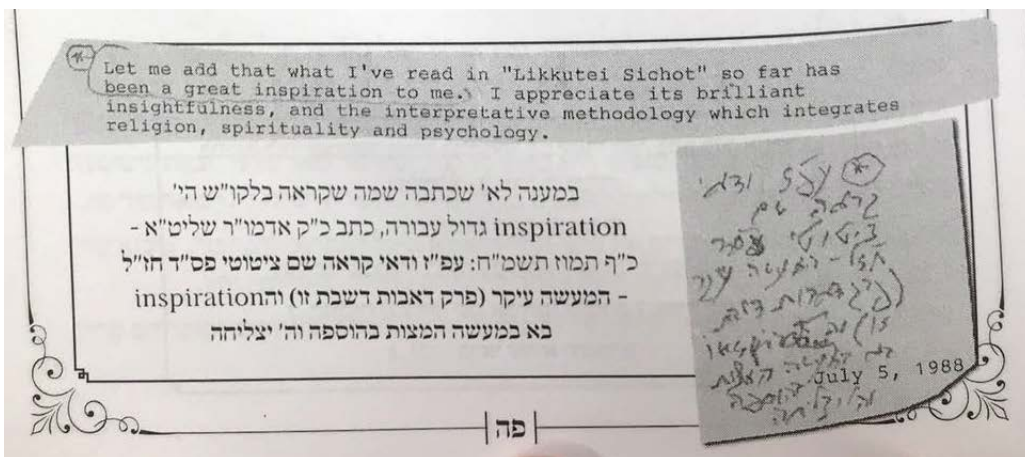 Let me add that what I've read in "Likkutei Sichot" so far has
been a great inspiration to me. I appreciate its brilliant
insightfulness, and the interpretative methodology which integrates
religion, spirituality and psychology.
במענה לא' שכתבה שמה שקראה בלקו"ש הי'
inspiration גדול עבורה, כתב כ"ק אדמו"ר שליט"א -
כ"ף תמוז תשמ"ח: עפ"ז ודאי קראה שם ציטוטי פס"ד חז"ל
- המעשה עיקר (פרק דאבות דשבת זו) והinspiration
בא במעשה המצות בהוספה וה' יצליחה
עפ"ז ודאי
קראה שם
ציטוטי פס"ד
חז"ל - המעשה עיקר
(פרק דאבות דשבת
זו)
בא במעשה המצות
בהוספה
וה' יצליחה
July 5, 1988
פה